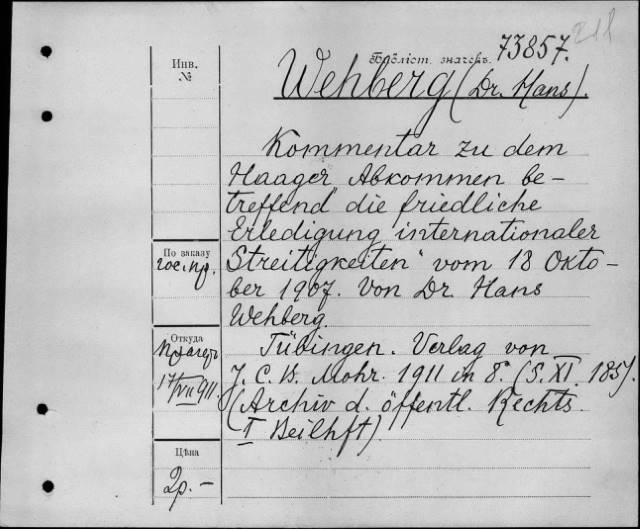 211
Бібліот. значекъ. 73857.
Wehberg (Dr. Hans).
Инв.
№
Kommentar zu dem
Haager „Abkommen be-
treffend die friedliche
Erledigung internationaler
Streitigkeiten“ vom 18 Okto-
ber 1907. Von Dr. Hans
Wehberg.
Tübingen. Verlag von
J. C. B. Mohr. 1911 in 8°. (S. XI. 185).
(Archiv d. öffentl. Rechts.
I Beilhft).
По заказу
гос. пр.
Откуда
17/VII 911
Цѣна
2р. -